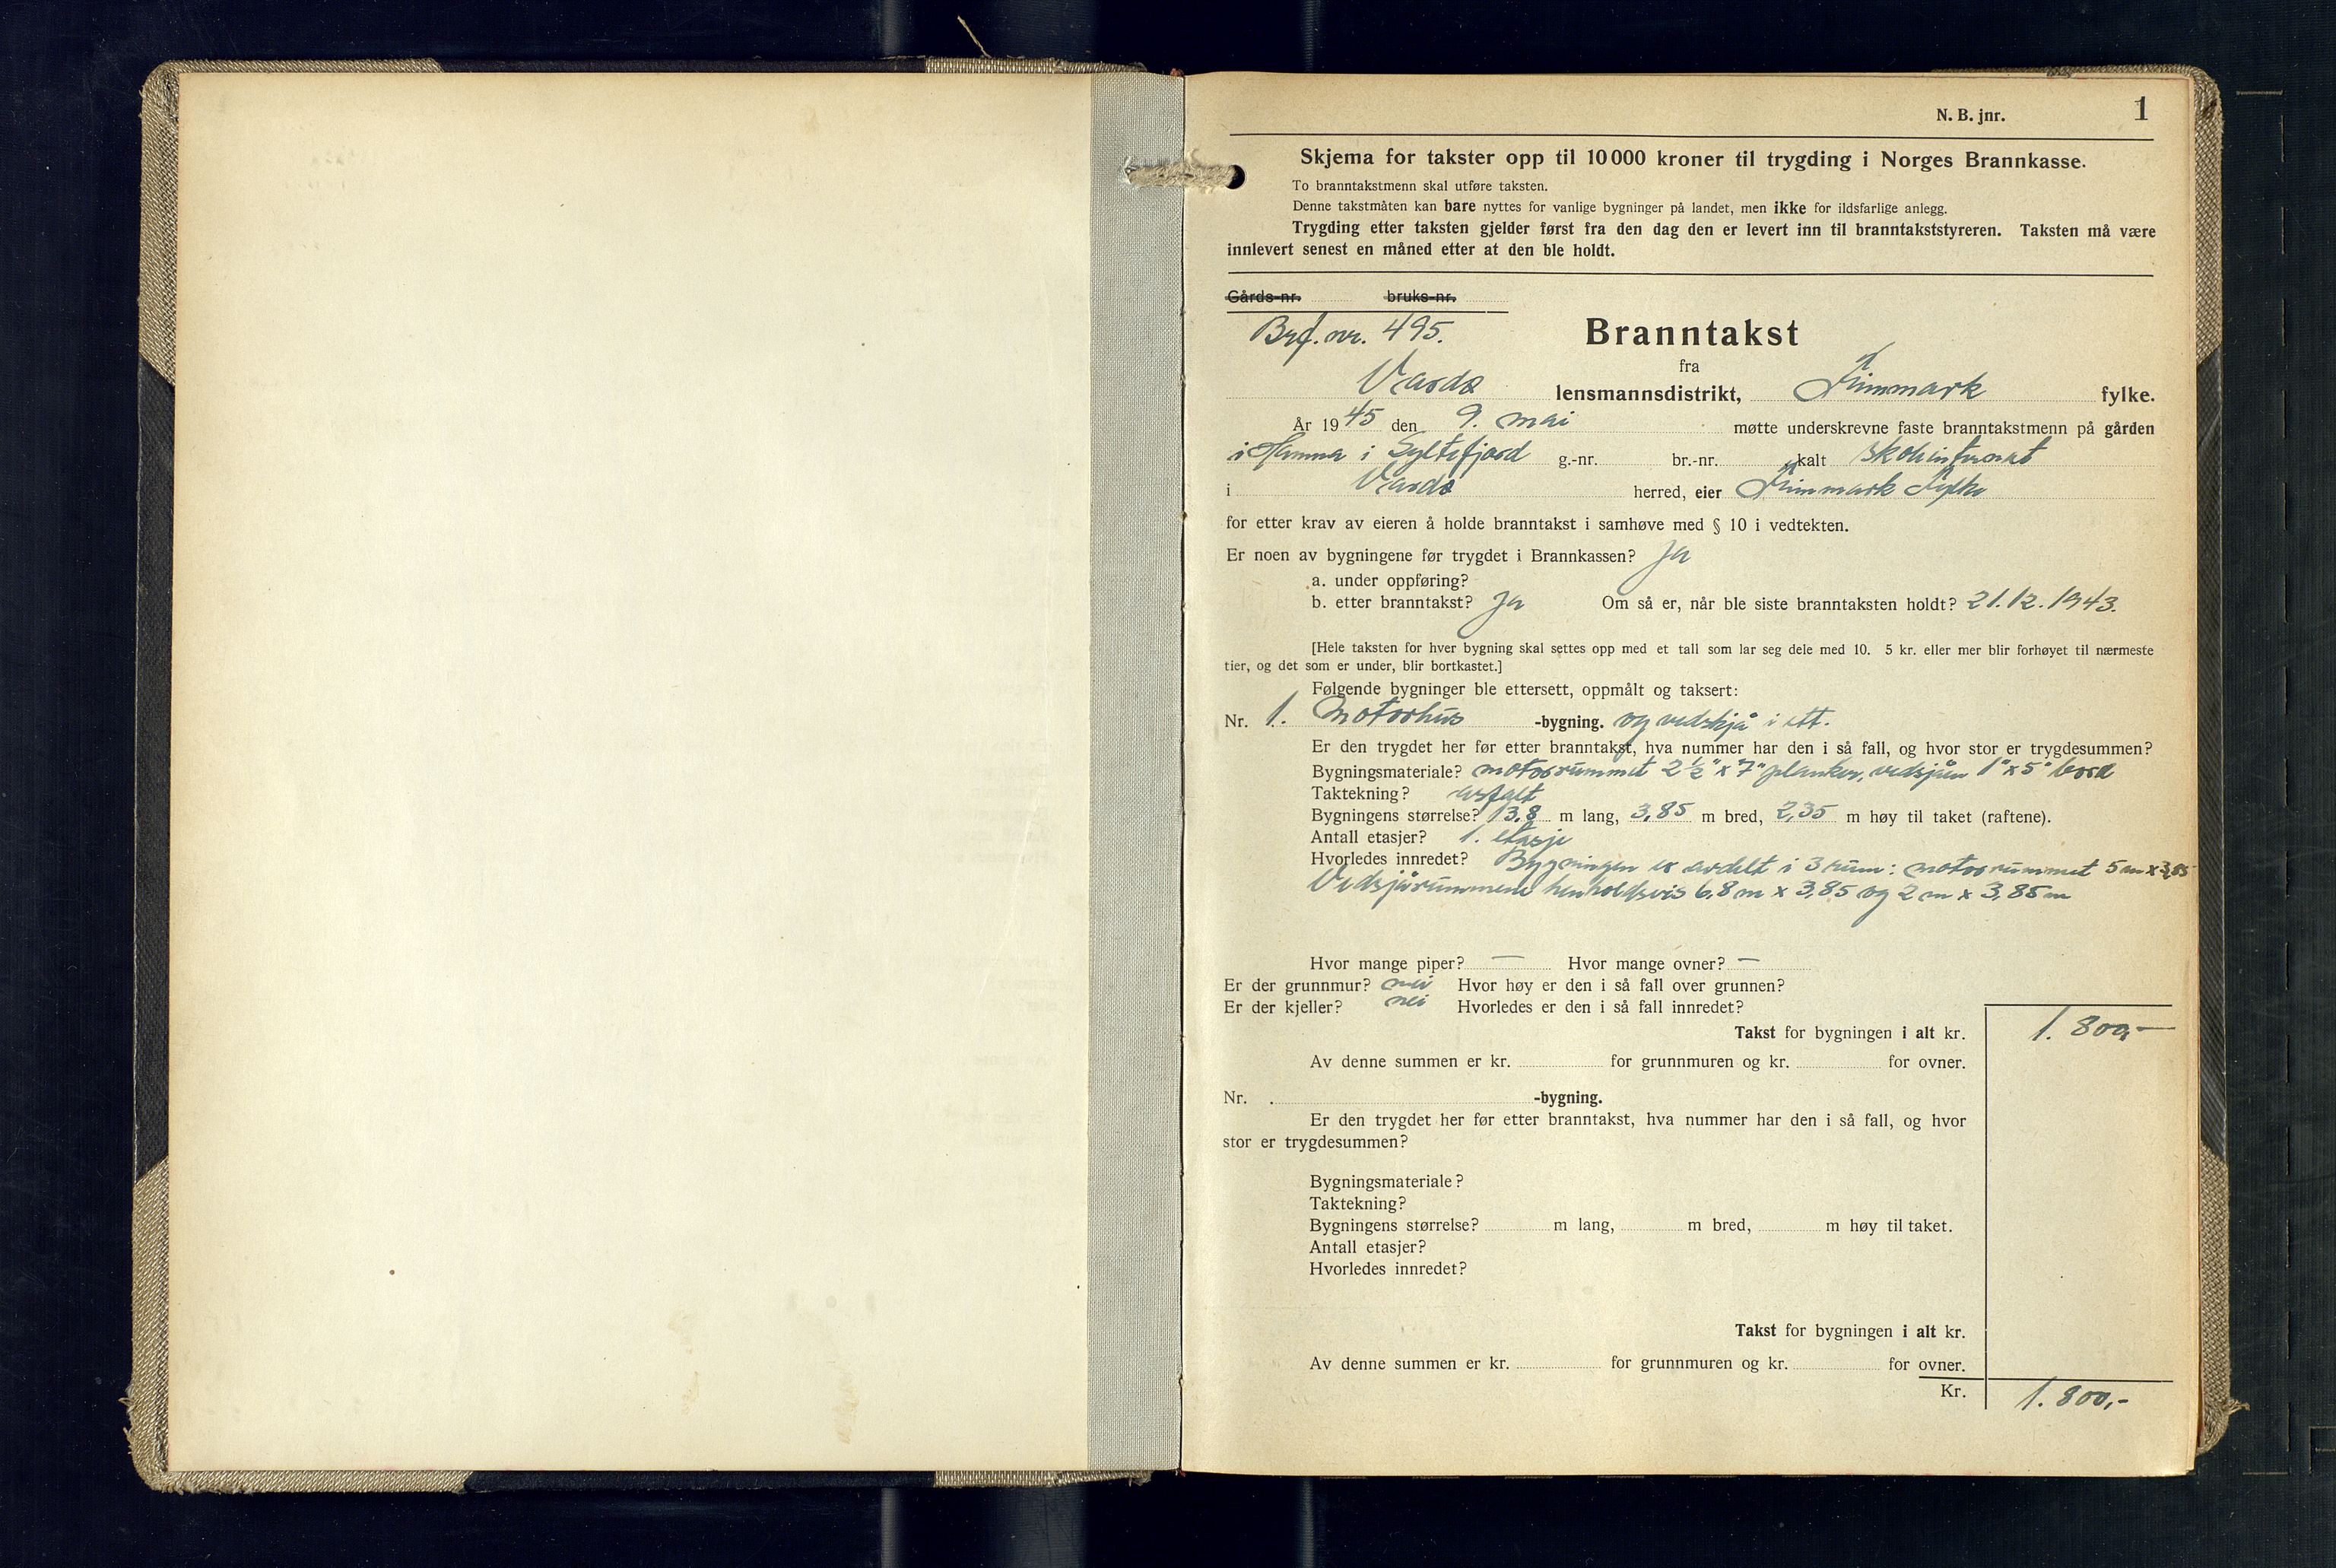 N. B. jnr. 1
Skjema for takster opp til 10 000 kroner til trygding i Norges Brannkasse.
To branntakstmenn skal utføre taksten.
Denne takstmåten kan bare nyttes for vanlige bygninger på landet, men ikke for ildsfarlige anlegg.
Trygding etter taksten gjelder først fra den dag den er levert inn til branntakststyreren. Taksten må være
innlevert senest en måned etter at den ble holdt.
Gårds-nr. bruks-nr.
Brf. nr. 495.
Branntakst
fra
Vardø lensmannsdistrikt, Finnmark fylke.
År 1945 den 9. mai møtte underskrevne faste branntakstmenn på gården
i Hamna i Syltefjord g.-nr. br.-nr. kalt Skoleinternat
i Vardø herred, eier Finnmark Fylke
for etter krav av eieren å holde branntakst i samhøve med § 10 i vedtekten.
Er noen av bygningene før trygdet i Brannkassen? Ja
a. under oppføring?
b. etter branntakst? Ja Om så er, når ble siste branntaksten holdt? 21.12.1943.
[Hele taksten for hver bygning skal settes opp med et tall som lar seg dele med 10. 5 kr. eller mer blir forhøyet til nærmeste
tier, og det som er under, blir bortkastet.]
Følgende bygninger ble ettersett, oppmålt og taksert:
Nr. 1. Motorhus -bygning. og vedskjå i ett.
Er den trygdet her før etter branntakst, hva nummer har den i så fall, og hvor stor er trygdesummen?
Bygningsmateriale? motorrummet 2½" x 7" planker, vedsjåen 1" x 5" bord
Taktekning? asfalt
Bygningens størrelse? 13,8 m lang, 3,85 m bred, 2,35 m høy til taket (raftene).
Antall etasjer? 1. etasje
Hvorledes innredet? Bygningen er avdelt i 3 rum: motorrummet 5 m x 3,85
Vedsjårummene henholdsvis 6,8 m x 3,85 og 2 m x 3,85 m
Hvor mange piper? — Hvor mange ovner? —
Er der grunnmur? nei Hvor høy er den i så fall over grunnen?
Er der kjeller? nei Hvorledes er den i så fall innredet?
Takst for bygningen i alt kr. 1.800,—
Av denne summen er kr. for grunnmuren og kr. for ovner.
Nr. . -bygning.
Er den trygdet her før etter branntakst, hva nummer har den i så fall, og hvor
stor er trygdesummen?
Bygningsmateriale?
Taktekning?
Bygningens størrelse? m lang, m bred, m høy til taket.
Antall etasjer?
Hvorledes innredet?
Takst for bygningen i alt kr.
Av denne summen er kr. for grunnmuren og kr. for ovner.
Kr. 1.800,-